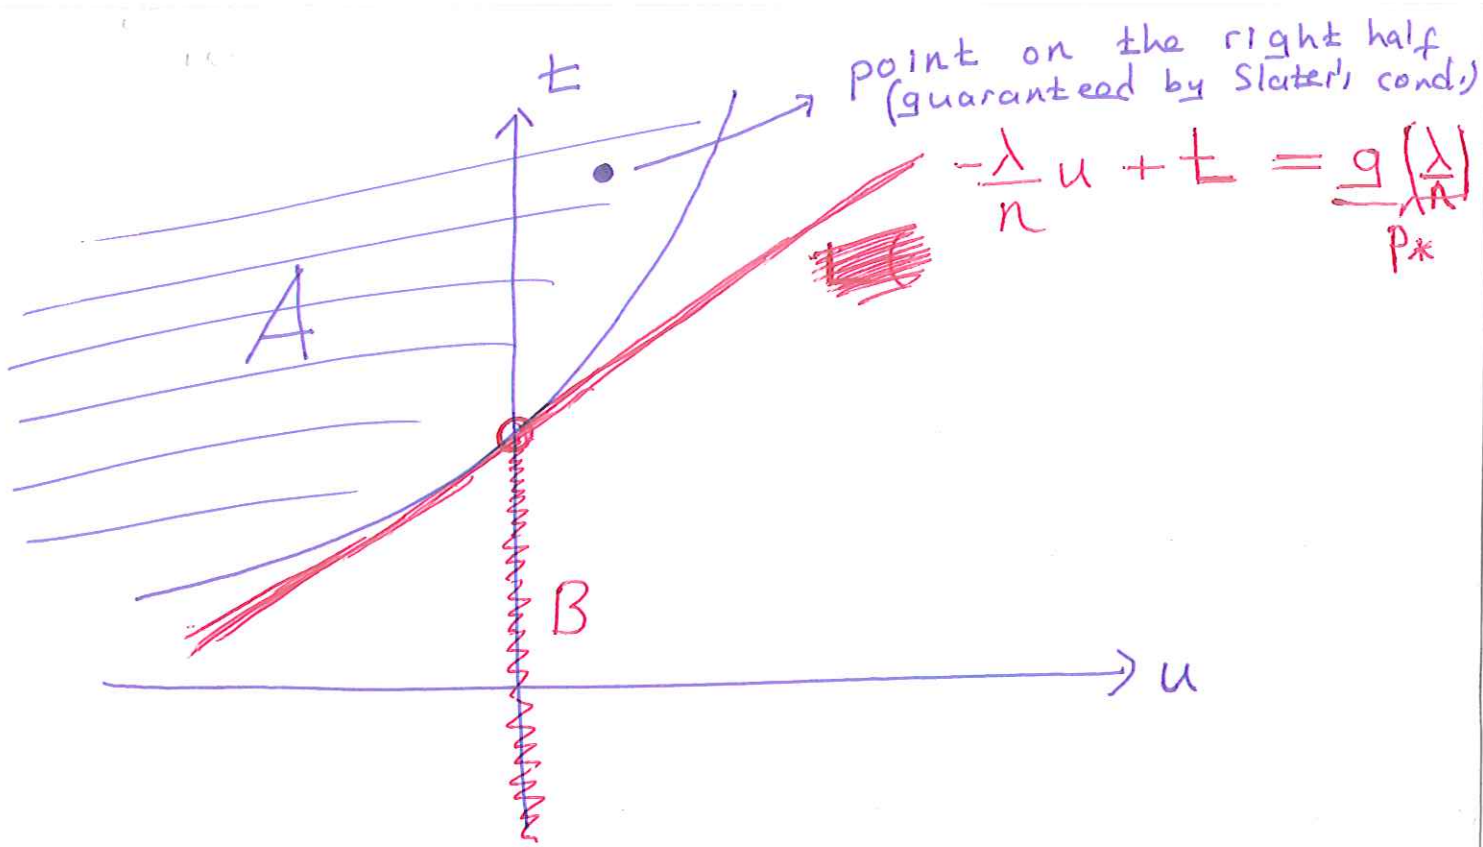 t
point on the right half
(guaranteed by Slater's cond.)
-λ/n u + t = g(λ/n)
p*
A
B
u